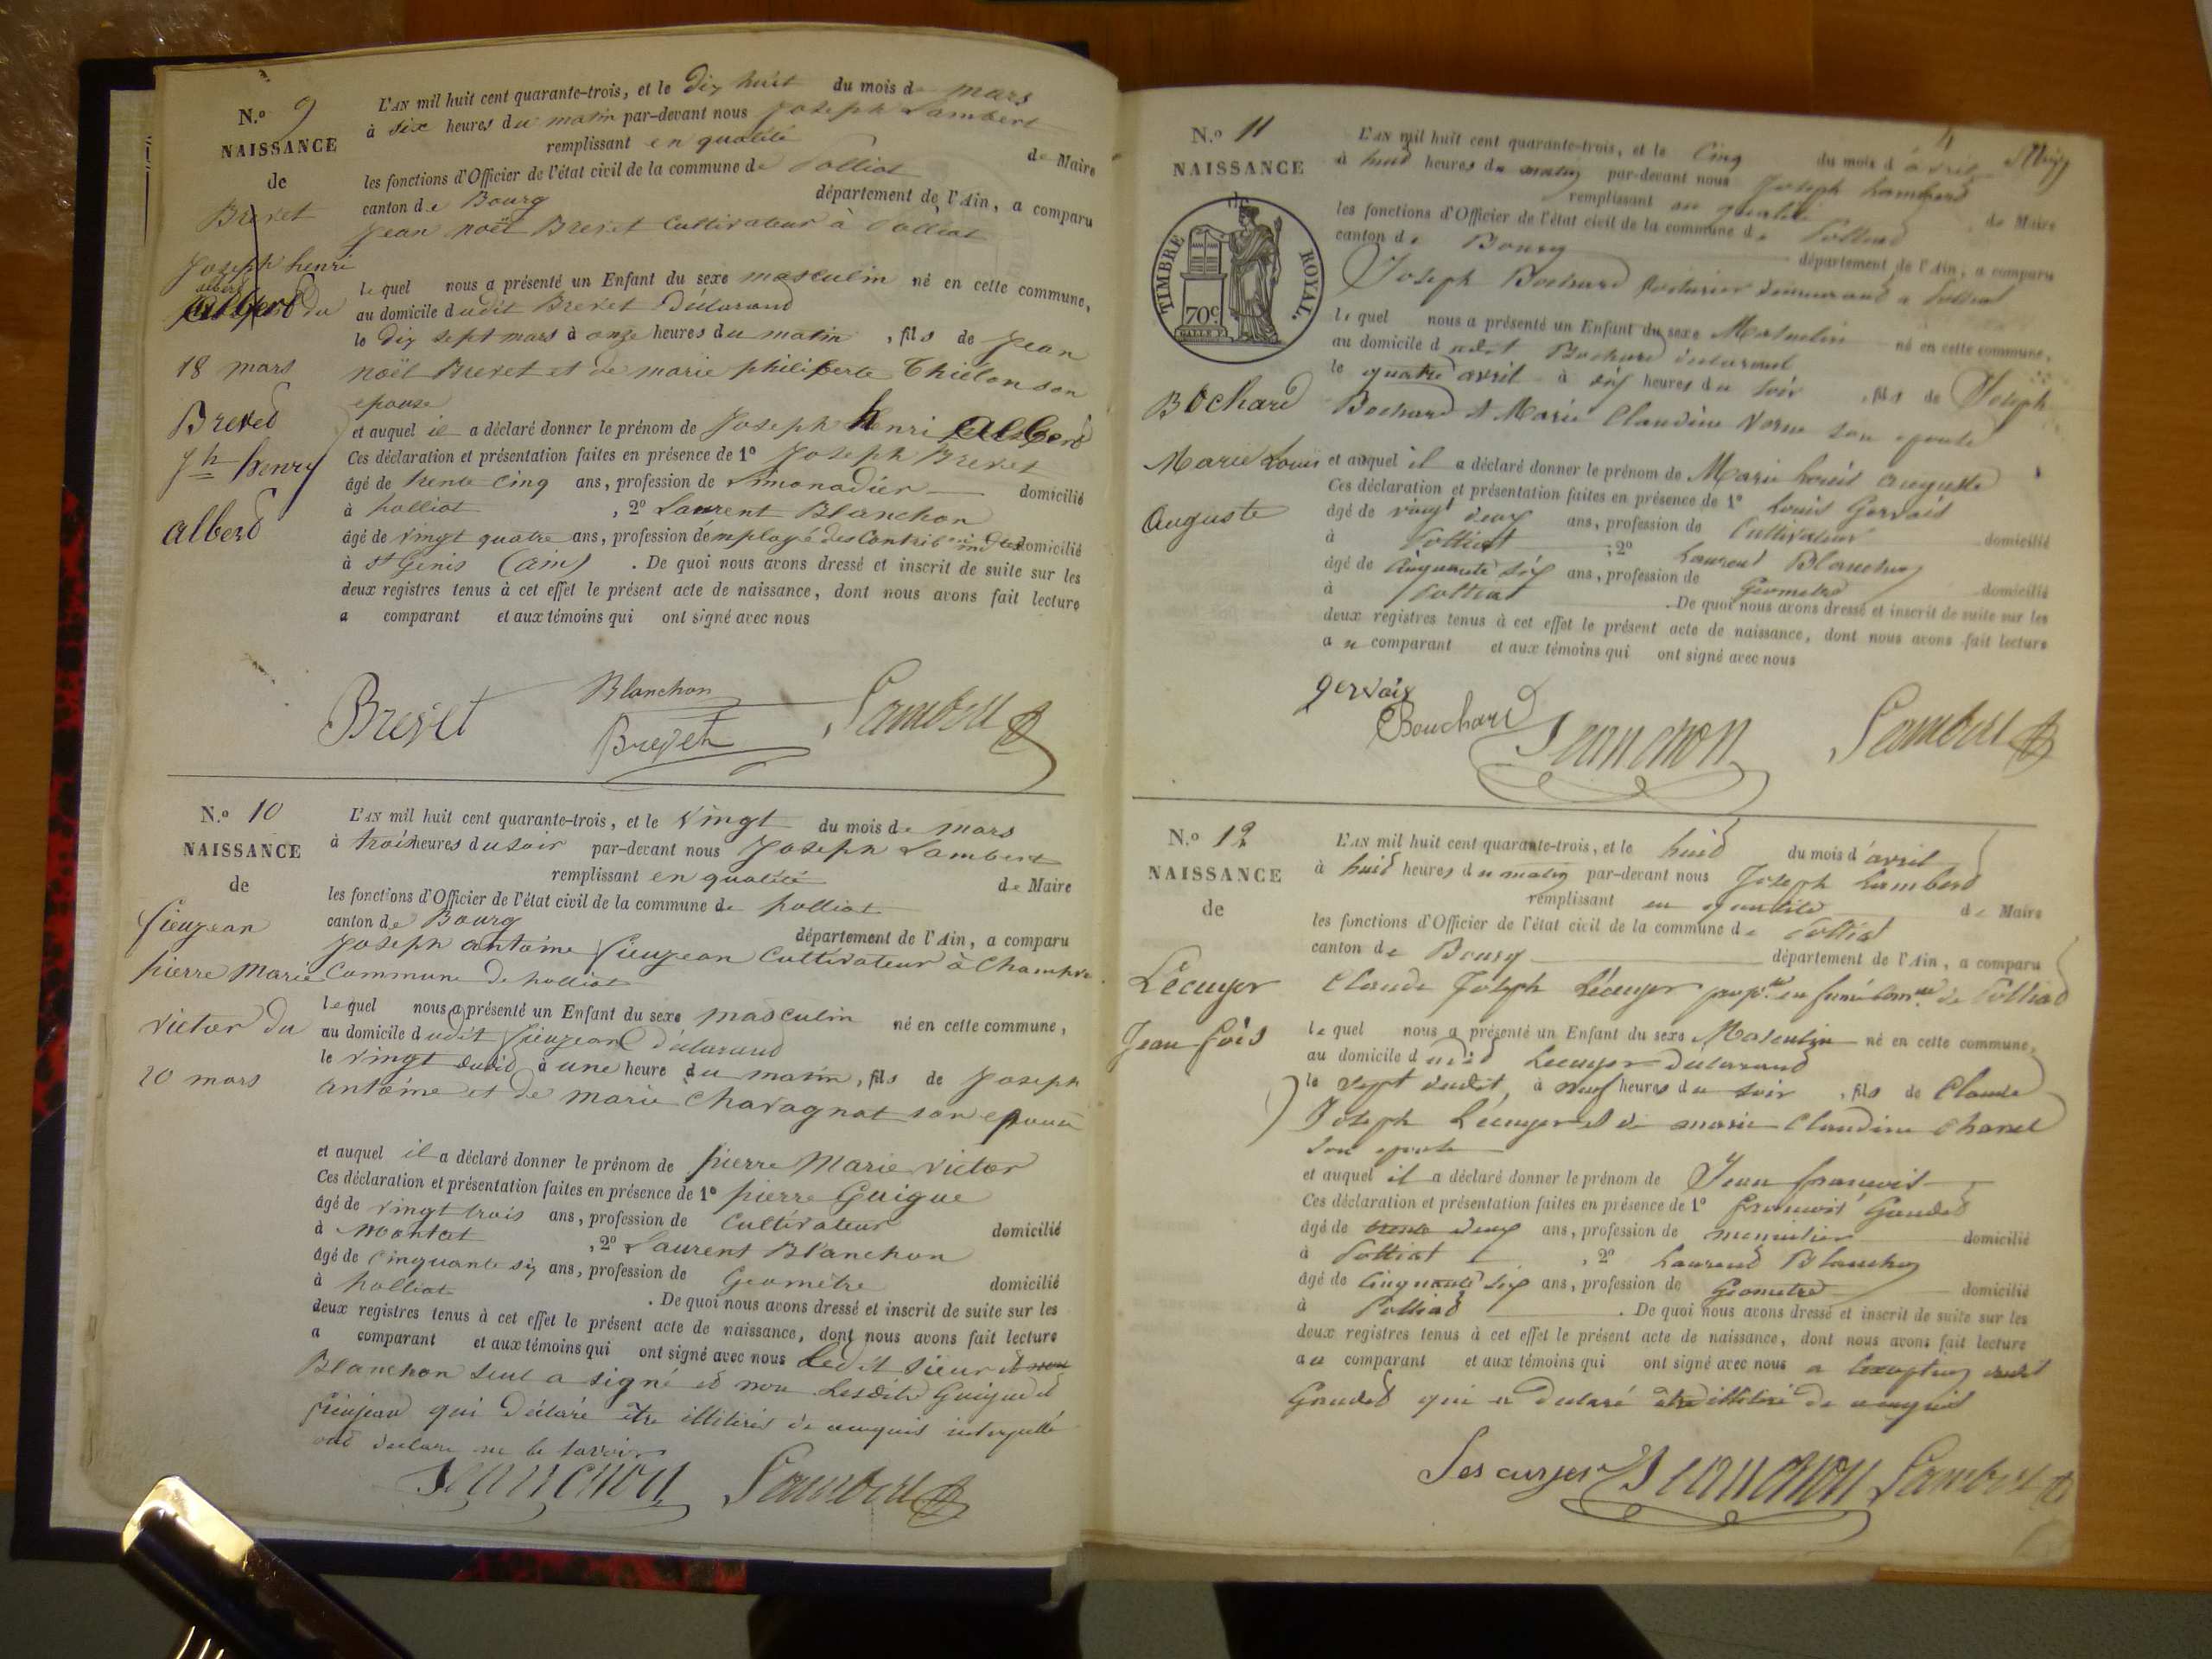 N.o 9
NAISSANCE
de
Brevet
Joseph henri
albert du
18 mars
Breved
Jh henry
alberd
L'AN mil huit cent quarante-trois, et le dix huit du mois de mars
à six heures du matin par-devant nous Joseph Lambert
remplissant en qualité de Maire
les fonctions d'Officier de l'état civil de la commune de Polliat
canton de Bourg département de l'Ain, a comparu
Jean noël Brevet Cultivateur à Polliat
lequel nous a présenté un Enfant du sexe masculin né en cette commune,
au domicile dudit Brevet Déclarand
le dix sept mars à onze heures du matin, fils de Jean
noël Brevet et de marie philiberte Thiélon son
epouse
et auquel il a déclaré donner le prénom de Joseph henri alberd
Ces déclaration et présentation faites en présence de 1o Joseph Brevet
âgé de trente cinq ans, profession de Limonadier domicilié
à polliat, 2o Laurent Blanchon
âgé de vingt quatre ans, profession d'employé des Contributions domicilié
à St Genis (ain). De quoi nous avons dressé et inscrit de suite sur les
deux registres tenus à cet effet le présent acte de naissance, dont nous avons fait lecture
a comparant et aux témoins qui ont signé avec nous
Brevet Blanchon
Brevet Lambert
N.o 10
NAISSANCE
de
fieujean
pierre Marie
victor du
20 mars
L'AN mil huit cent quarante-trois, et le vingt du mois de mars
à trois heures du soir par-devant nous Joseph Lambert
remplissant en qualité de Maire
les fonctions d'Officier de l'état civil de la commune de polliat
canton de Bourg département de l'Ain, a comparu
Joseph antoine fieujean Cultivateur à Champvre
Commune de polliat
lequel nous a présenté un Enfant du sexe masculin né en cette commune,
au domicile dudit fieujean déclarand
le vingt dudid à une heure du matin, fils de Joseph
antoine et de marie Chavagnat son epouse
et auquel il a déclaré donner le prénom de pierre Marie victor
Ces déclaration et présentation faites en présence de 1o pierre Guigue
âgé de vingt trois ans, profession de Cultivateur domicilié
à Montat, 2o Laurent Blanchon
âgé de cinquante six ans, profession de Géomètre domicilié
à polliat. De quoi nous avons dressé et inscrit de suite sur les
deux registres tenus à cet effet le présent acte de naissance, dont nous avons fait lecture
a comparant et aux témoins qui ont signé avec nous Ledit sieur
Blanchon seul a signé et non Lesdits Guigue et
fieujean qui déclaré être illitirés de cequis interpellé
ont declare ne le savoir
Blanchon Lambert
N.o 11
NAISSANCE
de
TIMBRE ROYAL.
70c
Bochard
Marie Louis
Auguste
L'AN mil huit cent quarante-trois, et le Cinq du mois d'avril
à huid heures du matin par-devant nous Joseph Lamberd
remplissant en qualité de Maire
les fonctions d'Officier de l'état civil de la commune de Polliad
canton de Bourg département de l'Ain, a comparu
Joseph Bochard demeurand a Polliad
lequel nous a présenté un Enfant du sexe Masculin né en cette commune,
au domicile dudit Bochard déclarand
le quatre avril à six heures du soir, fils de Joseph
Bochard et Marie Claudine son epouse
et auquel il a déclaré donner le prénom de Marie Louis auguste
Ces déclaration et présentation faites en présence de 1o Louis Gervais
âgé de vingt deux ans, profession de Cultivateur domicilié
à Polliat, 2o Laurent Blanchon
âgé de Cinquante six ans, profession de Géometre domicilié
à Polliat. De quoi nous avons dressé et inscrit de suite sur les
deux registres tenus à cet effet le présent acte de naissance, dont nous avons fait lecture
au comparant et aux témoins qui ont signé avec nous
gervais
Bouchard Blanchon Lambert
N.o 12
NAISSANCE
de
Lécuyer
Jean fois
L'AN mil huit cent quarante-trois, et le huid du mois d'avril
à huid heures du matin par-devant nous Joseph Lamberd
remplissant en qualité de Maire
les fonctions d'Officier de l'état civil de la commune de Polliat
canton de Bourg département de l'Ain, a comparu
Claude Joseph Lécuyer de Polliad
lequel nous a présenté un Enfant du sexe Masculin né en cette commune,
au domicile dudid Lecuyer déclarand
le sept dudit, à neuf heures du soir, fils de Claude
Joseph Lécuyer et de marie Claudine Chanel
son epouse
et auquel il a déclaré donner le prénom de Jean francois
Ces déclaration et présentation faites en présence de 1o francois Gauded
âgé de trente deux ans, profession de menuisier domicilié
à Polliat, 2o Laurend Blanchon
âgé de Cinquante six ans, profession de Géometre domicilié
à Polliad. De quoi nous avons dressé et inscrit de suite sur les
deux registres tenus à cet effet le présent acte de naissance, dont nous avons fait lecture
au comparant et aux témoins qui ont signé avec nous a Lexception dudit
Gauded qui a declaré être illitiré de cequis
Lescuyer Blanchon Lambert